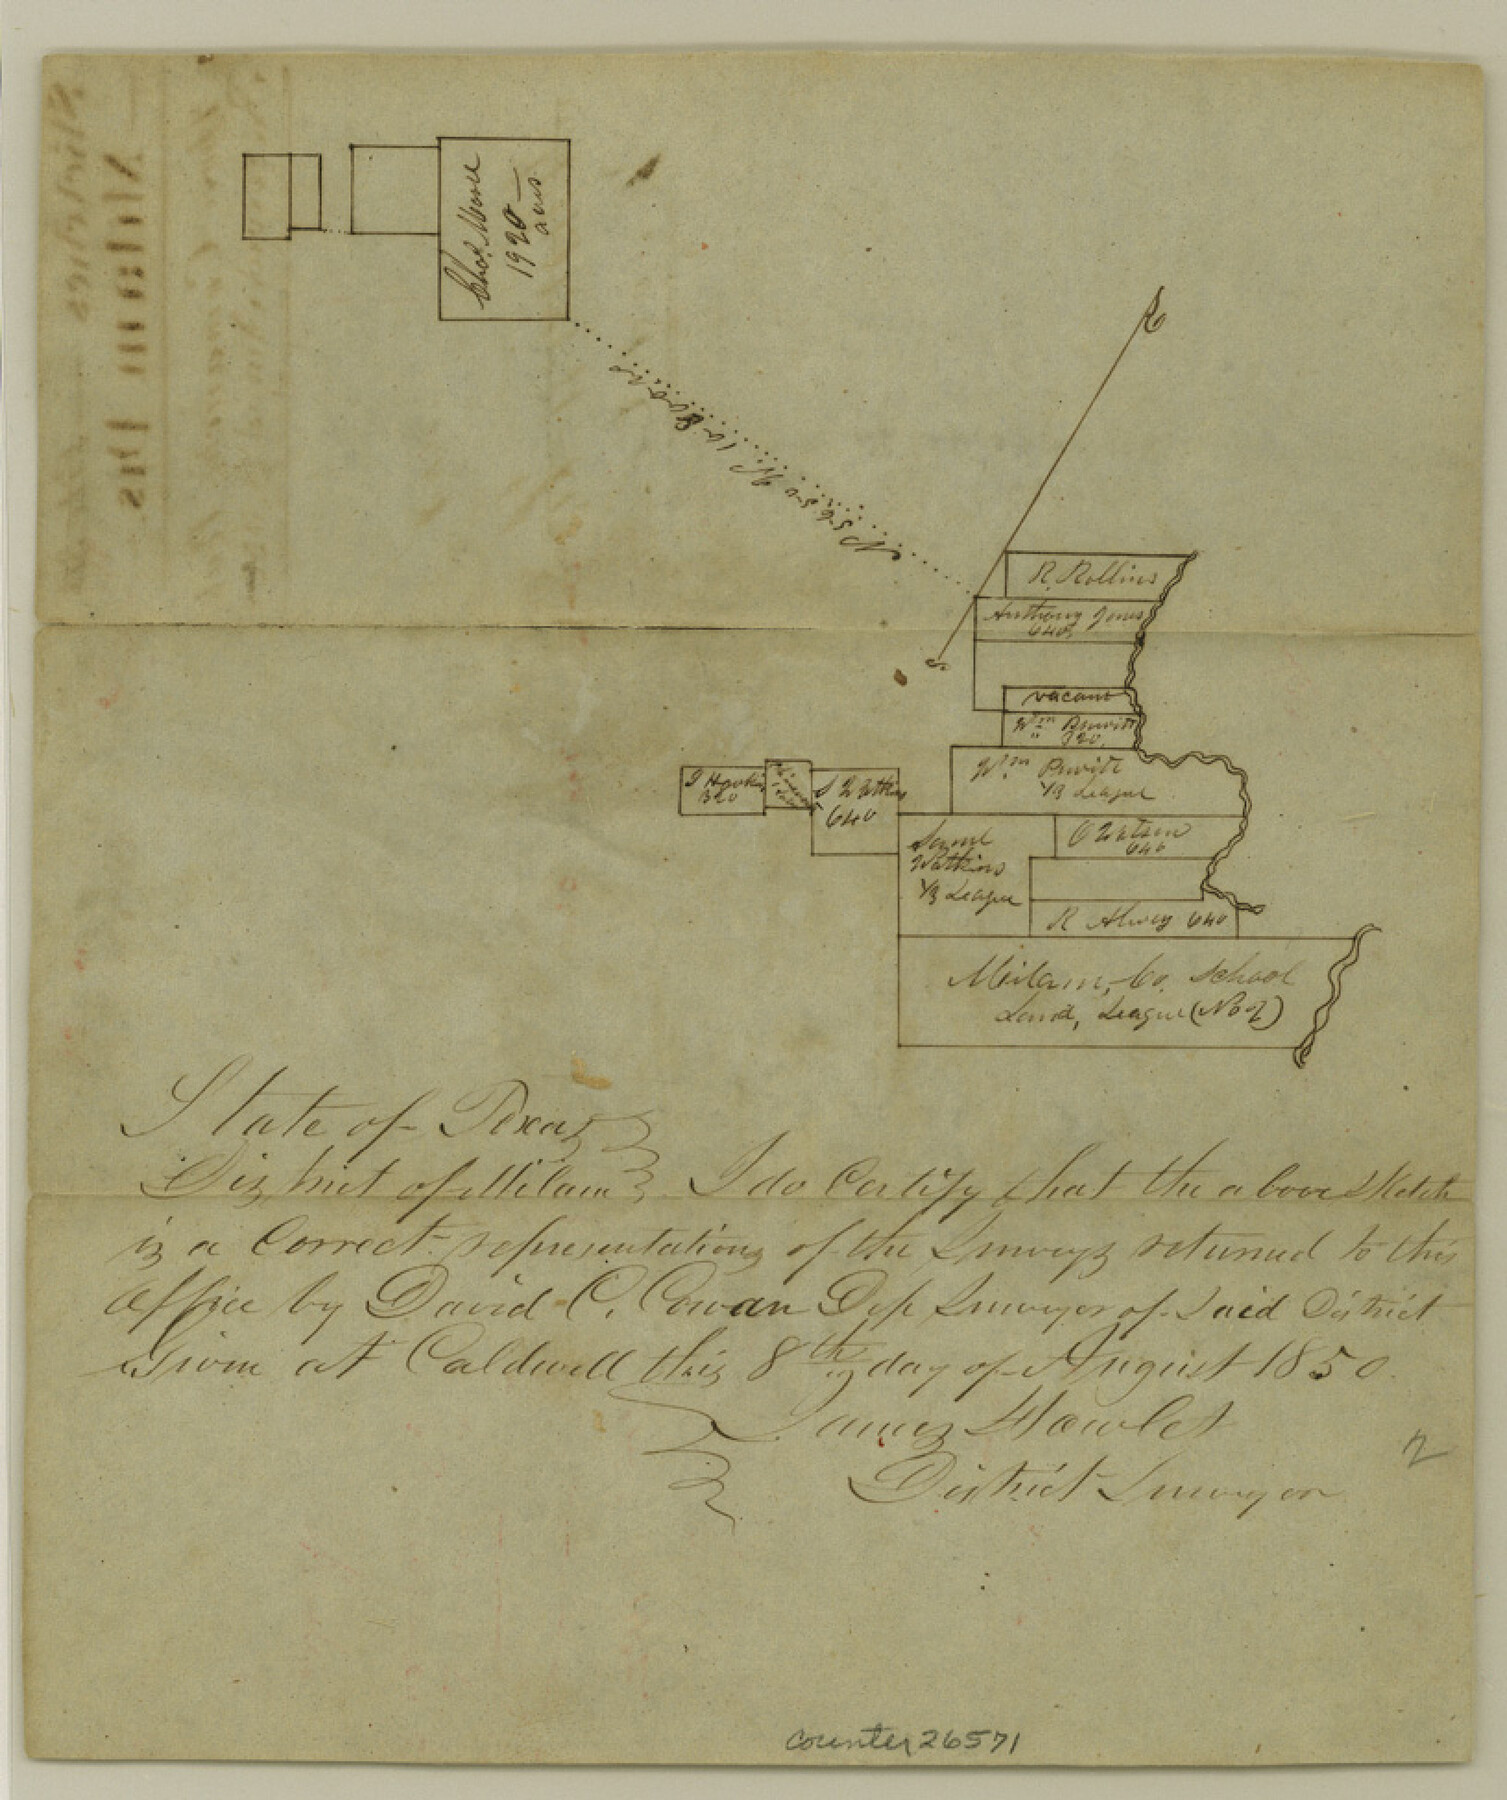 Chas. Morse
1920
acres
R. Rollins
Anthony Jones
640
vacant
Wm Pruvitt
320
Wm Pruvitt
1/3 League
J Hawkins
320
S Watkins
640
Saml
Watkins
1/3 League
O Watson
640
R Alvey 640
Milam, Co. School
Land, League (No 2)
State of Texas
District of Milam I do Certify that the above Sketch
is a Correct representation of the Surveys returned to this
Office by David C. Cowan Dep Surveyor of Said District
Given at Caldwell this 8th day of August 1850.
James Howlet
District Surveyor
2
counter 26571